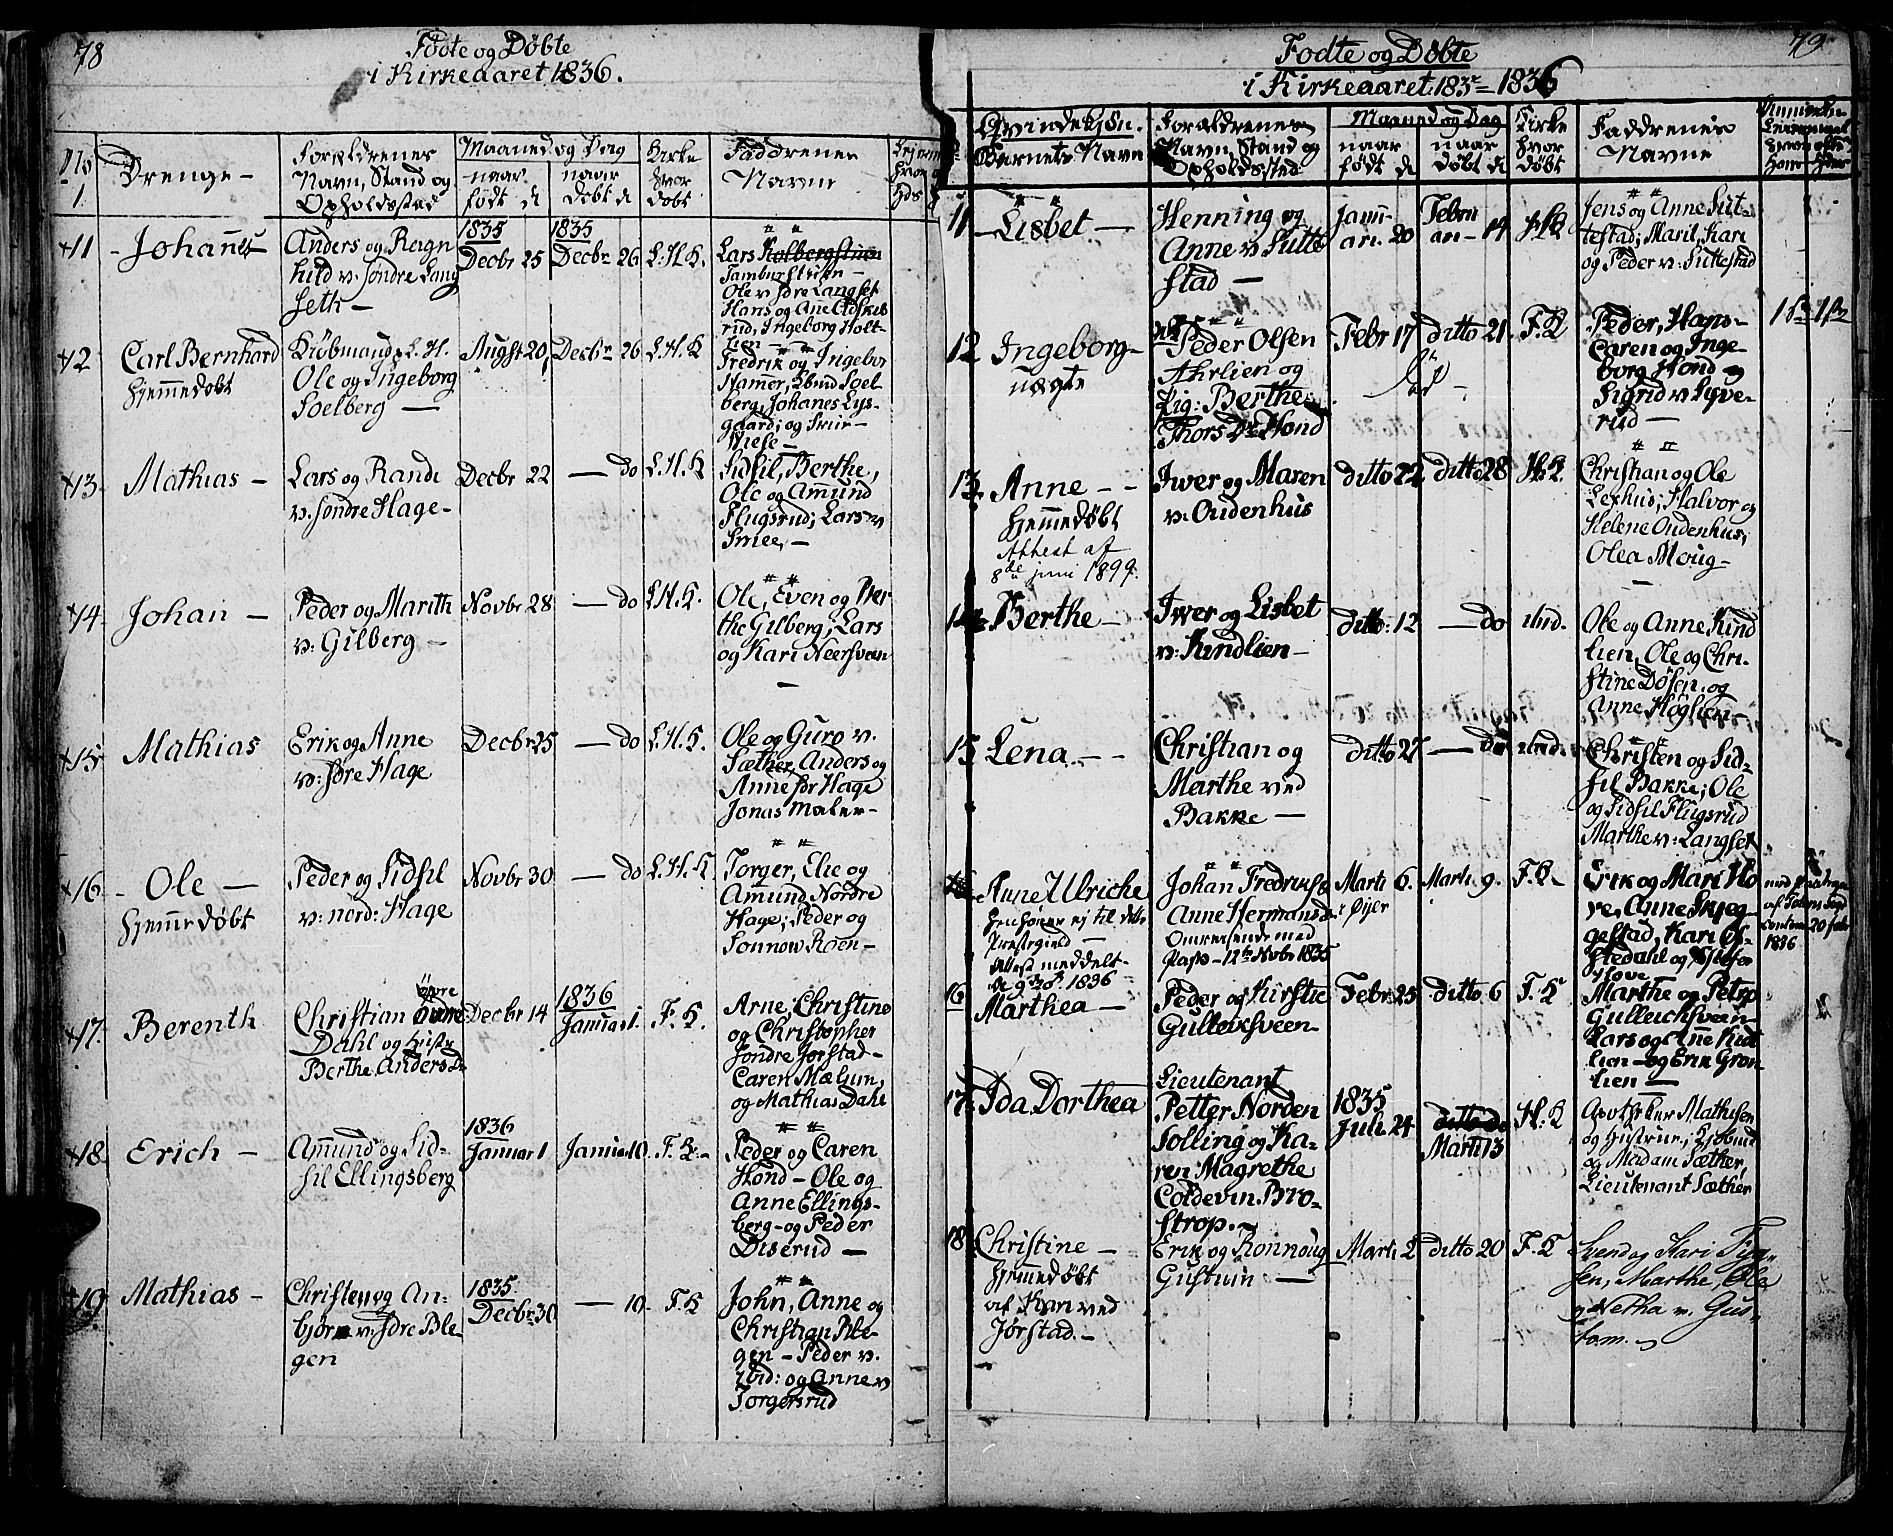 78
Födte og Döbte
i Kirkeaaret 1836.
No
1
Drenge -
Forældrenes
Navn, Stand og
Opholdssted
Maaned og Dag
naar
födt d
naar
döbt d
Kirke
hvor
döbt
Faddrenes
Navne
11 - Johannes
Anders og Ragn
hild v. söndre Lang
seth -
1835
Decbr 25
1835
Decbr 26
L. H. K.
Lars
Ole v. sdre Langset
Hans og Anne
rud, Ingeborg Holt-
lien -
12
Carl Bernhard
hjemmedöbt
Kiöbmand, L. H.
Ole og Ingeborg
Soelberg -
Augst 20
Decbr 26
L. H. K
Fredrik og Ingebor
Hamer,
Soel-
berg, Johanes Lys-
gaard; og
13.
Mathias -
Lars og Randi
v. söndre Hage -
Decbr 22
- do
L. H. K
Sidsil, Berthe,
Ole og Amund
Flugsrud; Lars v
Smee, -
14.
Johan -
Peder og Marith
v: Gilberg -
Novbr 28
- do
L H. K.
Ole, Even og Ber
the Gilberg; Lars
og Kari Neersveen
-
15
Mathias
Erik og Anne
v: sdre Hage
Decbr 25
- do
L. H. K.
Ole og Guro v.
Sæther, Anders og
Anne sdr Hage
Jonas Maler -
16.
- Ole -
hjemmedöbt
Peder og Sidsil
v: nord: Hage
Novbr 30
- do
L. H. K
Torger, Elie og
Amund Nordre
Hage; Peder og
Sonnow Roen -
17.
Berenth
Christian
Dahl og Hustr
Berthe Andersd.
Decbr 14
1836
Januar 1.
F. K.
Arne, Christine
og Christopher
söndre Jorstad -
Caren Mælum,
og Mathias Dahl
18.
Erich -
Amund og Sid-
sil Ellingsberg
1836
Januar 1
Januar 10
F. K -
Peder og Caren
Hond - Ole og
Anne Ellings-
berg - og Peder
Diserud -
19.
Mathias -
Christen og An-
björ v. sdre Ble
gen
1835
Decbr 30
- 10
F. K
John, Anne og
Christian Ble-
gen - Peder v.
Ibid: og Anne v
Torgersrud
79
Fodte og Döbte
i Kirkeaaret 1835 - 1836
Qvindekjön.
Barnets Navn
Forældrenes
Navn, Stand og
Opholdssted
Maaned og Dag
naar
födt d
naar
döbt d
Kirke
hvor
döbt
Faddrenes
Navne
11
Lisbet -
Henning og
Anne v Sutte
stad -
Janu-
ari. 20
Febru
ari - 14
Jens og Anne Sut-
testad; Marit, Kari
og Peder v: Suttestad
12
Ingeborg -
uægte
Peder Olsen
Ahrlien og
Pig: Berthe
Thors Dr Hond
Febr 17
ditto 21
F. K
Peder, Hans -
Caren og Inge
borg Hond og
Sigrid v Syve-
rud -
13.
Anne - -
hjemmedöbt
Attest af
8de juni 1899.
Iwer og Maren
v: Oudenhus
ditto 22
ditto 28
H. K.
Christian og Ole
Lexhus; Halvor og
Helene Oudenhus;
Olea Moug -
-
14
Berthe -
Iwer og Lisbet
v: Kindlien -
ditto: 12
- do
ibid.
Ole og Anne Kind
lien, Ole og Chri-
stine Dösen, og
Anne Höglien -
15
Lena - -
Christian og
Marthe ved
Bakke -
ditto 27
- do
ibid.
Christen og Sid-
sil Bakke; Ole
og Sidsil Flugsrud
Marthe v. Langset
Anne Ulriche
henhörer ej til dette
Præstegield -
Attest meddelt
Johan Fredrikse
Anne Hermansd.
Omreisende med
Pass - 12te Novbr 1835
Marti 6.
i Öijer
Marti 9.
F. K -
Erik og Mari Ho
ve, Anne Skjeg-
gestad, Kari
1836
16
Marthea -
Peder og Kirstie
Gulleiksveen -
Febr 25
ditto 6
F. K
Marthe og Petro
Gulleichsveen -
Lars og Anne Kind
lien - og Erik Gron
lien -
17.
Ida Dorthea
Lieutenant
Petter Norden
Solling og Ka-
ren Magrethe
Coldevin. Bro-
strop. -
1835
Juli 24
ditto do
Marti 13
H. K
Apotheker Mathisen
og Hustrue; Kjöbmd
og Madam Sæther,
Lieutenant Sæther
18
Christine -
hjemmedöbt
af Kari ved
Jörstad. -
Erik og Ronnoug
Gustum -
Marti 2
ditto 20
F. K
Svend og Kari
Marthe, Ole
v. Gus-
tom. -